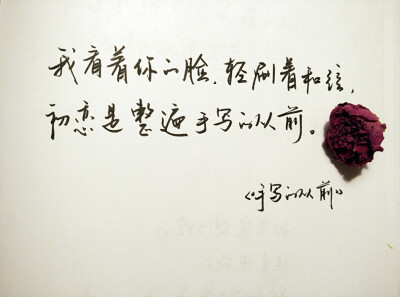 我看着你的脸，轻刷着和弦，
初恋是整遍手写的从前。
《手写的从前》